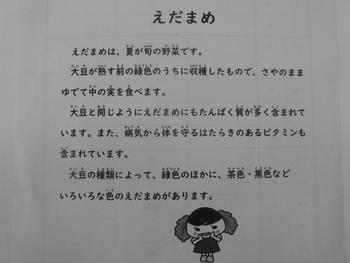 えだまめ
えだまめは、夏が旬の野菜です。
大豆が熟す前の緑色のうちに収穫したもので、さやのまま
ゆでて中の実を食べます。
大豆と同じようにえだまめにもたんぱく質が多く含まれて
います。また、病気から体を守るはたらきのあるビタミンも
含まれています。
大豆の種類によって、緑色のほかに、茶色・黒色など
いろいろな色のえだまめがあります。